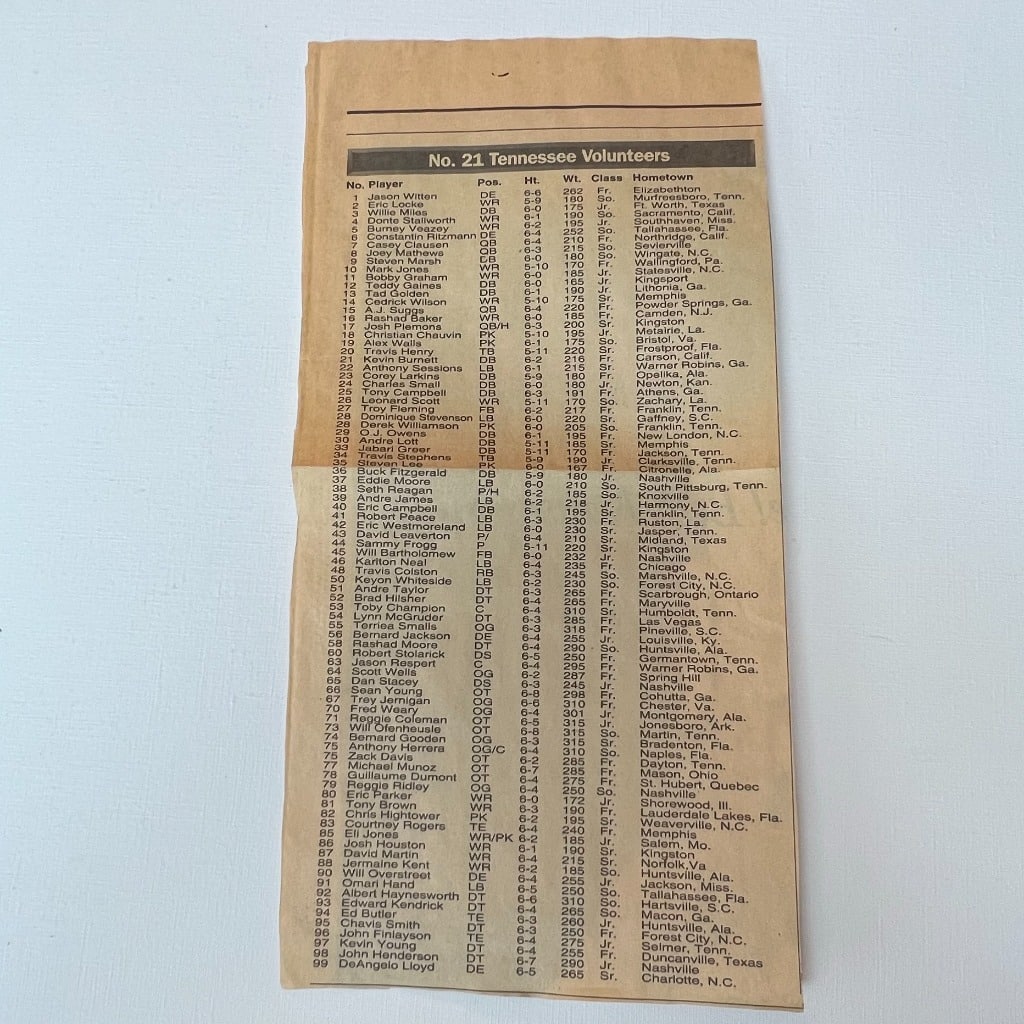 No. 21 Tennessee Volunteers
No. Player Pos. Ht. Wt. Class Hometown
1 Jason Witten DE 6-6 262 Fr. Elizabethton
2 Eric Locke WR 5-9 180 So. Murfreesboro, Tenn.
3 Willie Miles DB 6-0 175 Jr. Ft. Worth, Texas
4 Donte Stallworth WR 6-1 190 So. Sacramento, Calif.
5 Burney Veazey WR 6-2 195 Jr. Southhaven, Miss.
6 Constantin Ritzmann DE 6-4 252 So. Tallahassee, Fla.
7 Casey Clausen QB 6-4 210 Fr. Northridge, Calif.
8 Joey Mathews QB 6-3 215 So. Sevierville
9 Steven Marsh DB 6-0 180 So. Wingate, N.C.
10 Mark Jones WR 5-10 170 Fr. Wallingford, Pa.
11 Bobby Graham WR 6-0 185 Jr. Statesville, N.C.
12 Teddy Gaines DB 6-0 165 Jr. Kingsport
13 Tad Golden DB 6-1 190 Jr. Lithonia, Ga.
14 Cedrick Wilson WR 5-10 175 Sr. Memphis
15 A.J. Suggs QB 6-4 220 Fr. Powder Springs, Ga.
16 Rashad Baker WR 6-0 185 Fr. Camden, N.J.
17 Josh Plemons QB/H 6-3 200 Sr. Kingston
18 Christian Chauvin PK 5-10 195 Jr. Metairie, La.
19 Alex Walls PK 6-1 175 So. Bristol, Va.
20 Travis Henry TB 5-11 220 Sr. Frostproof, Fla.
21 Kevin Burnett DB 6-2 216 Fr. Carson, Calif.
22 Anthony Sessions LB 6-1 215 Sr. Warner Robins, Ga.
23 Corey Larkins DB 5-9 180 Fr. Opelika, Ala.
24 Charles Small DB 6-0 180 Jr. Newton, Kan.
25 Tony Campbell DB 6-3 191 Fr. Athens, Ga.
26 Leonard Scott WR 5-11 170 So. Zachary, La.
27 Troy Fleming FB 6-2 217 Fr. Franklin, Tenn.
28 Dominique Stevenson LB 6-0 220 Sr. Gaffney, S.C.
28 Derek Williamson PK 6-0 205 So. Franklin, Tenn.
29 O.J. Owens DB 6-1 195 Fr. New London, N.C.
30 Andre Lott DB 5-11 185 Sr. Memphis
33 Jabari Greer DB 5-11 170 Fr. Jackson, Tenn.
34 Travis Stephens TB 5-9 190 Jr. Clarksville, Tenn.
35 Steven Lee PK 6-0 167 Fr. Citronelle, Ala.
36 Buck Fitzgerald DB 5-9 180 Jr. Nashville
37 Eddie Moore LB 6-0 210 So. South Pittsburg, Tenn.
38 Seth Reagan P/H 6-2 185 So. Knoxville
39 Andre James LB 6-2 218 Jr. Harmony, N.C.
40 Eric Campbell DB 6-1 195 Sr. Franklin, Tenn.
41 Robert Peace LB 6-3 230 Fr. Ruston, La.
42 Eric Westmoreland LB 6-0 230 Sr. Jasper, Tenn.
43 David Leaverton P/ 6-4 210 Sr. Midland, Texas
44 Sammy Frogg P 5-11 220 Sr. Kingston
45 Will Bartholomew FB 6-0 232 Jr. Nashville
46 Karlton Neal LB 6-4 235 Fr. Chicago
48 Travis Colston RB 6-3 245 So. Marshville, N.C.
50 Keyon Whiteside LB 6-2 230 So. Forest City, N.C.
51 Andre Taylor DT 6-3 265 Fr. Scarbrough, Ontario
52 Brad Hilsher DT 6-4 265 Fr. Maryville
53 Toby Champion C 6-4 310 Sr. Humboldt, Tenn.
54 Lynn McGruder DT 6-3 285 Fr. Las Vegas
55 Terriea Smalls OG 6-3 318 Fr. Pineville, S.C.
56 Bernard Jackson DE 6-4 255 Jr. Louisville, Ky.
58 Rashad Moore DT 6-4 290 So. Huntsville, Ala.
60 Robert Stolarick DS 6-5 250 Fr. Germantown, Tenn.
63 Jason Respert C 6-4 295 Fr. Warner Robins, Ga.
64 Scott Wells OG 6-2 287 Fr. Spring Hill
65 Dan Stacey DS 6-3 245 Jr. Nashville
66 Sean Young OT 6-8 298 Fr. Cohutta, Ga.
67 Trey Jernigan OG 6-6 310 Fr. Chester, Va.
70 Fred Weary OG 6-4 301 Jr. Montgomery, Ala.
71 Reggie Coleman OT 6-5 315 Jr. Jonesboro, Ark.
73 Will Ofenheusle OT 6-8 315 So. Martin, Tenn.
74 Bernard Gooden OG 6-3 315 Sr. Bradenton, Fla.
75 Anthony Herrera OG/C 6-4 310 So. Naples, Fla.
75 Zack Davis OT 6-2 285 Fr. Dayton, Tenn.
77 Michael Munoz OT 6-7 285 Fr. Mason, Ohio
78 Guillaume Dumont OT 6-4 275 Fr. St. Hubert, Quebec
79 Reggie Ridley OG 6-4 250 So. Nashville
80 Eric Parker WR 6-0 172 Jr. Shorewood, Ill.
81 Tony Brown WR 6-3 190 Fr. Lauderdale Lakes, Fla.
82 Chris Hightower PK 6-2 195 Sr. Weaverville, N.C.
83 Courtney Rogers TE 6-4 240 Fr. Memphis
85 Eli Jones WR/PK 6-2 185 Jr. Salem, Mo.
86 Josh Houston WR 6-1 190 Sr. Kingston
87 David Martin WR 6-4 215 Sr. Norfolk,Va
88 Jermaine Kent WR 6-2 185 So. Huntsville, Ala.
90 Will Overstreet DE 6-4 255 Jr. Jackson, Miss.
91 Omari Hand LB 6-5 250 So. Tallahassee, Fla.
92 Albert Haynesworth DT 6-6 310 So. Hartsville, S.C.
93 Edward Kendrick DT 6-4 265 So. Macon, Ga.
94 Ed Butler TE 6-3 260 Jr. Huntsville, Ala.
95 Chavis Smith DT 6-3 250 Fr. Forest City, N.C.
96 John Finlayson TE 6-4 275 Jr. Selmer, Tenn.
97 Kevin Young DT 6-4 255 Fr. Duncanville, Texas
98 John Henderson DT 6-7 290 Jr. Nashville
99 DeAngelo Lloyd DE 6-5 265 Sr. Charlotte, N.C.